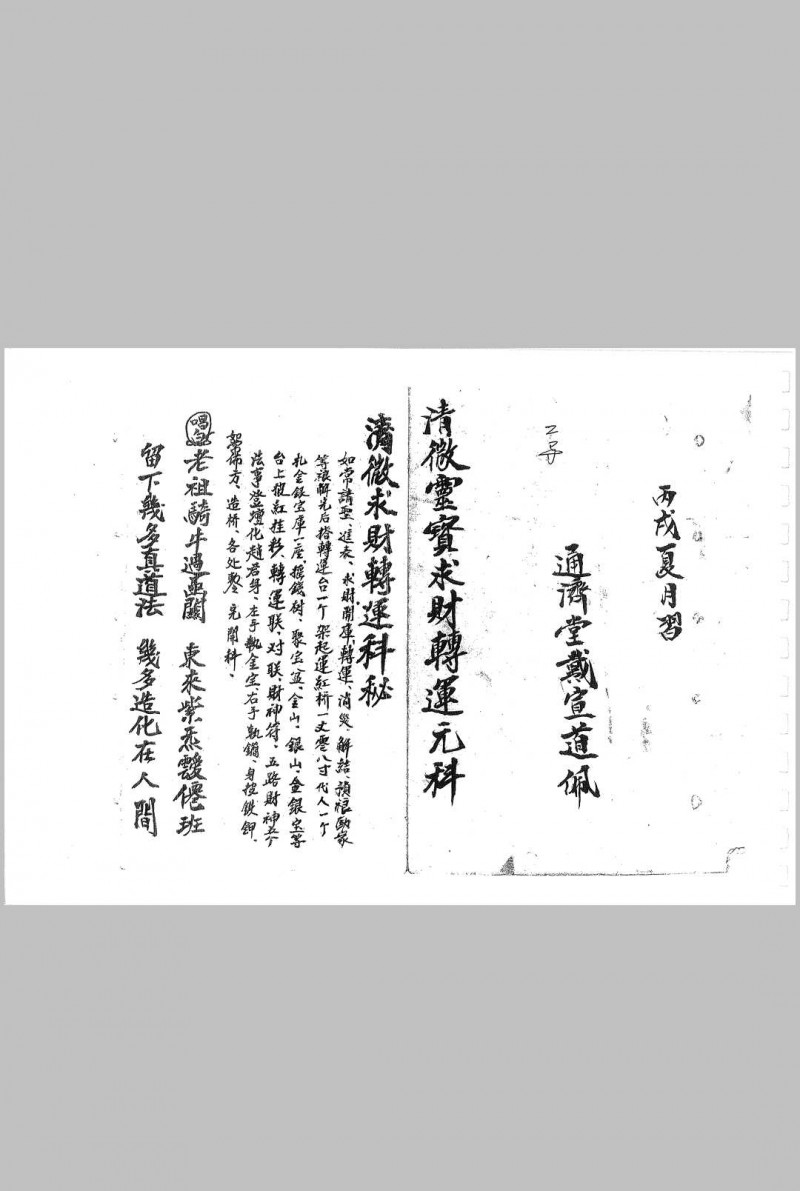 丙戌夏月習
通濟堂戴宣道佩
清微靈寶求財轉運元科
清微求財轉運科秘
如常請聖、進表、求財開庫、轉運、消災、解結、
等 解完后搭轉運台一个架起運紅桥一丈零八寸代人一个
札金銀宝庫一座摇錢树、聚宝盆、金山、銀山、金銀宝等
台上披紅挂彩、轉運联、对联、財神符、五路財神五个
法事登壇化趙君身、左手執金宝右手執鐧、身挂鉄鉀、
佈方、造桥、各处整完開科、
唱 老祖騎牛過 關 東來紫炁靉僊班
留下幾多真道法 幾多造化在人間